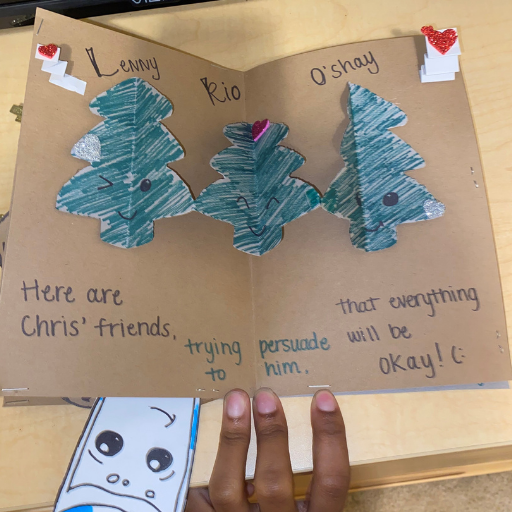 Lenny
Rio
O'shay
Here are
Chris' friends,
trying
to
persuade
him.
that everything
will be
okay! (: